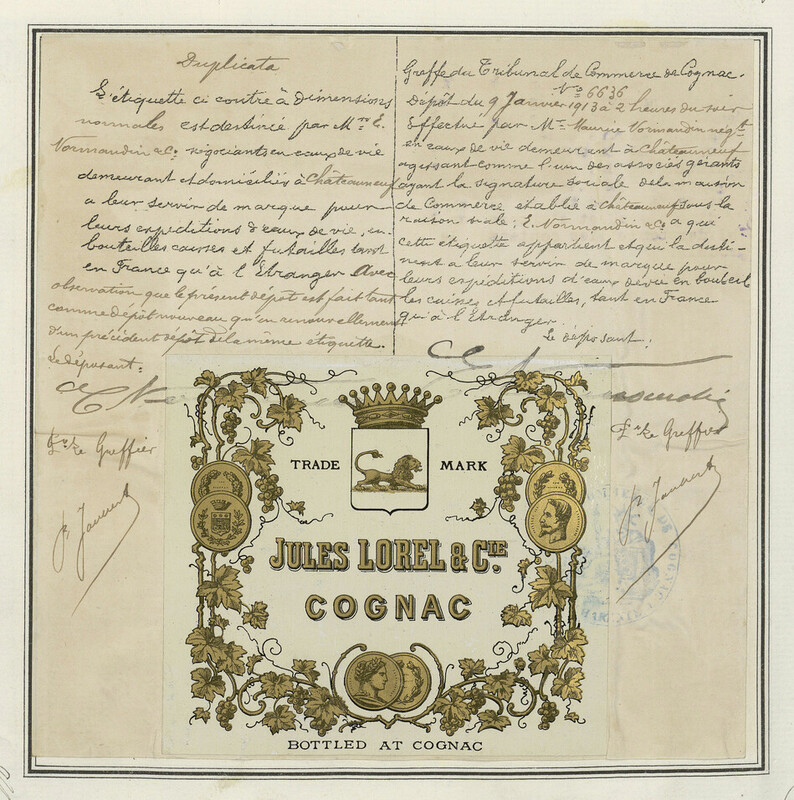 Duplicata
L'étiquette ci contre à dimensions
normales est destinée par Mrs E.
Normandin & Co. négociants en eaux de vie
demeurant et domiciliés à Châteauneuf
a leur servir de marque pour
leurs expéditions d'eaux de vie, en
bouteilles caisses et futailles tant
en France qu'à l'Etranger Avec
observation que le présent dépôt est fait tant
comme dépôt nouveau qu'en renouvellement
d'un précédent dépôt de la même étiquette.
Le déposant:
Le Greffier
Greffe du Tribunal de Commerce de Cognac.
No 6636
Dépôt du 9 Janvier 1913 à 2 heures du soir
Effectué par Mr Maurice Normandin négt
en eaux de vie demeurant à Châteauneuf
agissant comme l'un des associés gérants
ayant la signature sociale de la maison
de Commerce établie à Châteauneuf sous la
raison sociale: E. Normandin & Co. a qui
cette étiquette appartient et qui la desti-
nent à leur servir de marque pour
leurs expéditions d'eaux de vie en bouteil
les caisses et futailles, tant en France
qu'à l'Etranger
Le déposant:
Le Greffier
TRADE MARK
JULES LOREL & CIE.
COGNAC
BOTTLED AT COGNAC